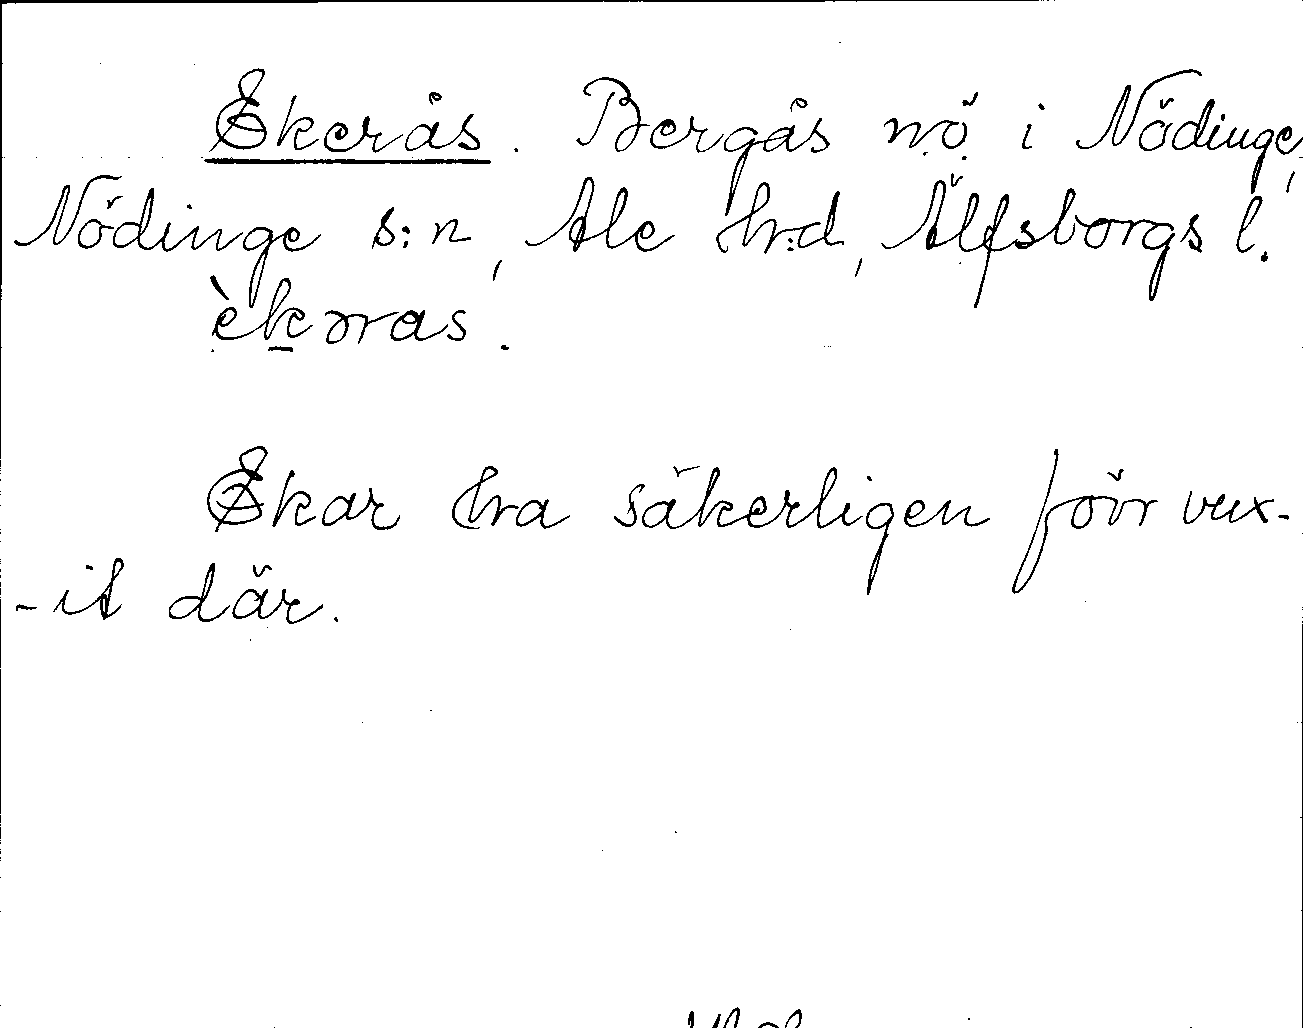 Ekerås. Bergås nö i Nödinge,
Nödinge s:n, Ale hrd, Älfsborgs l.
èkərras.
Ekar ha säkerligen förr vux-
-it där.